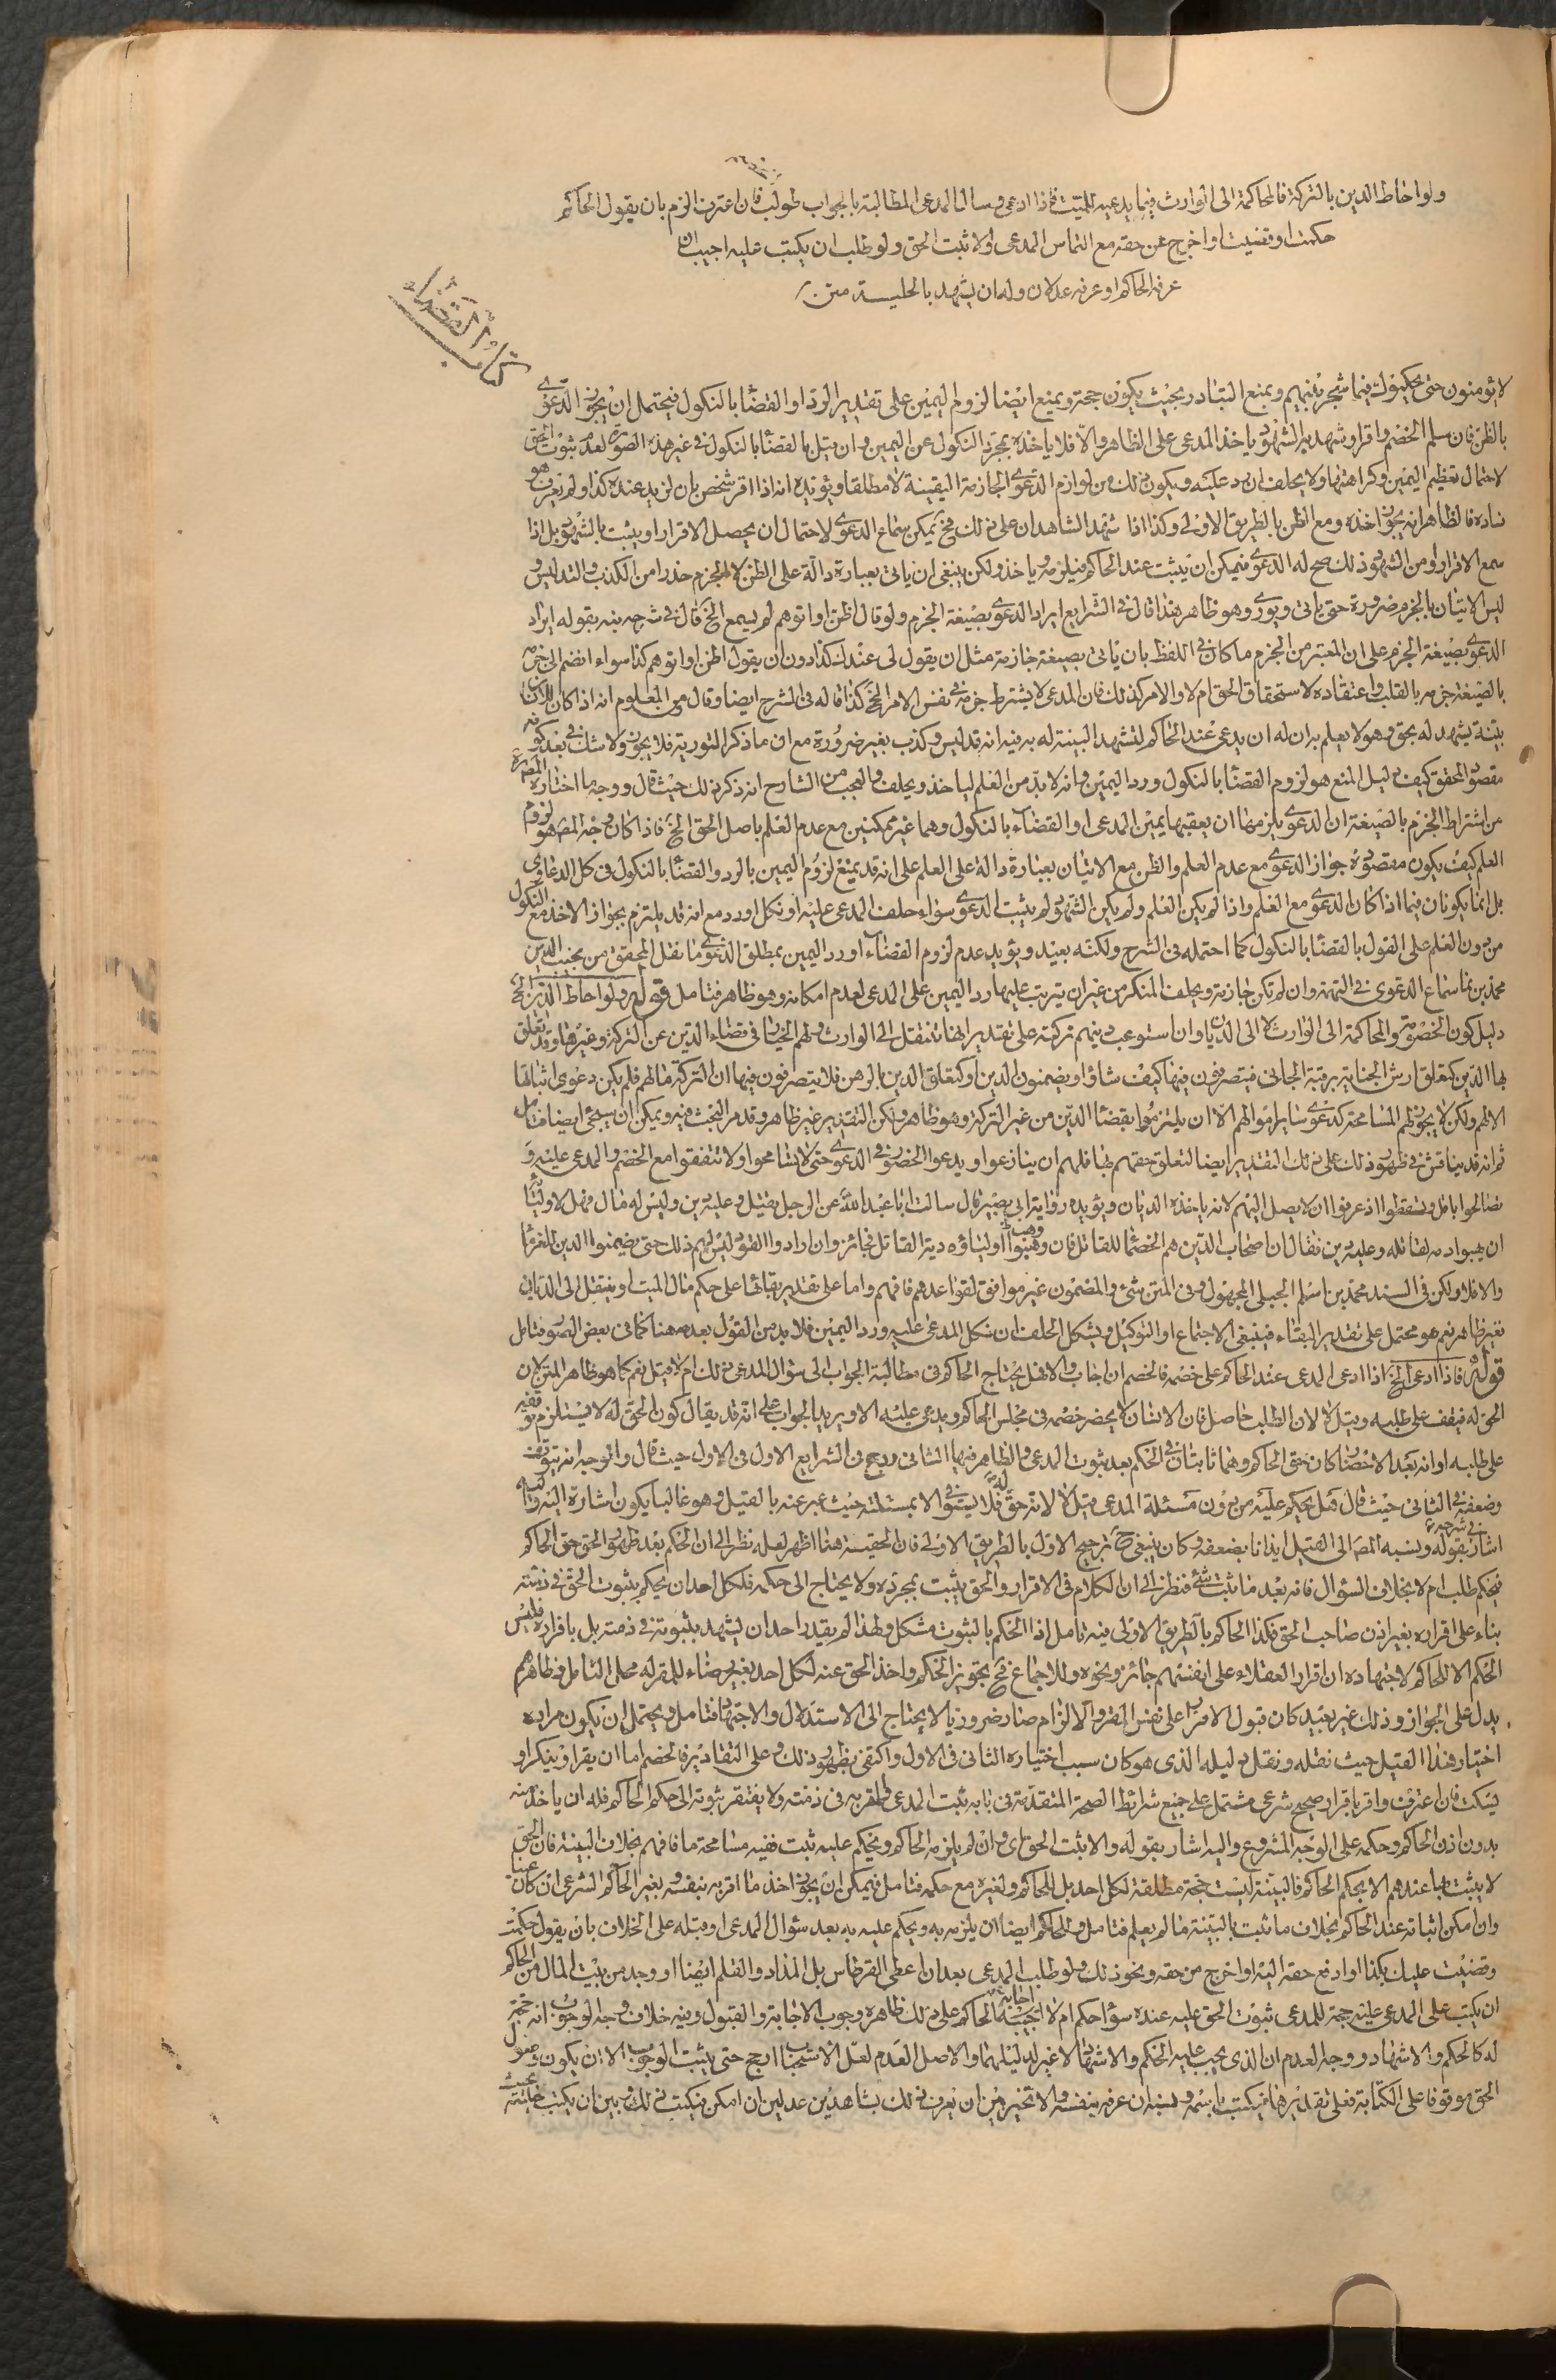 ولو احاط الدين بالتركة فالمحاكمة الى الوارث فيما يدعيه للميت فاذا ادعى وسال المدعى المطالبة بالجواب طولب فان اعترف الزم بان يقول الحاكم
حكمت او قضيت او اخرج عن حقه مع التماس المدعى والا ثبت الحق ولو طلب ان يكتب عليه اجيب ان
عرفه الحاكم او عرفه عدلان وله ان يشهد بالحلية متن
كتاب القضاء
لا يؤمنون حتى يحكموك فيما شجر بينهم ويمنع التبادر بحيث يكون حجة ويمنع ايضا لزوم اليمين على تقدير الرد او القضا بالنكول فيحتمل ان يجوز الدعوى
بالظن فان سلم الخصم واقر او شهد به الشهود ياخذ المدعى على الظاهر والا فلا ياخذه بمجرد النكول عن اليمين وان قيل بالقضا بالنكول فى غير هذه الصورة لعدم ثبوت الحق
لاحتمال تعظيم اليمين وكراهتها ولا يحلف ان رد عليه ويكون ذلك من لوازم الدعوى الجازمة اليقينية لا مطلقا ويؤيده انه اذا اقر شخص بان لزيد عنده كذا ولم يعرف هو
فالظاهر انه يجوز اخذه ومع الظن بالطريق الاولى وكذا اذا شهد الشاهدان على ذلك فح يمكن سماع الدعوى لاحتمال ان يحصل الاقرار او يثبت بالشهود بل اذا
سمع الاقرار او من الشهود ذلك صح له الدعوى فيمكن ان يثبت عند الحاكم فيلزمه وياخذ ولكن ينبغى ان ياتى بعبارة دالة على الظن لا الجزم حذرا من الكذب والتدليس و
ليس الاتيان بالجزم ضرورة حتى ياتى ويورى وهو ظاهر هذا قال فى الشرايع ايراد الدعوى بصيغة الجزم ولو قال اظن او اتوهم لم يسمع الخ قال فى شرحه نبه بقوله ايراد
الدعوى بصيغة الجزم على ان المعتبر من الجزم ما كان فى اللفظ بان ياتى بصيغة جازمة مثل ان يقول لى عندك كذا دون ان يقول اظن او اتوهم كذا سواء انضم الى جزمه
بالصيغة جزمه بالقلب واعتقاده لاستحقاق الحق ام لا والامر كذلك فان المدعى لا يشترط جزمه فى نفس الامر الخ كذا قاله فى الشرح ايضا وقال من المعلوم انه اذا كان للمدعى
بينة يشهد له بحق وهو لا يعلم به ان له ان يدعى عند الحاكم لتشهد البينة له به وفيه انه تدليس وكذب بغير ضرورة مع ان ما ذكر التورية فلا يجوز ولا شك فى بعد كونه
مقصود المحقق كيف ودليل المنع هو لزوم القضا بالنكول ورد اليمين وانه لا بد من العلم لياخذ ويحلف والعجب من الشارح انه ذكر ذلك حيث قال ووجه ما اختاره المصنف
من اشتراط الجزم بالصيغة ان الدعوى يلزمها ان يعقبها يمين المدعى او القضاء بالنكول وهما غير ممكنين مع عدم العلم باصل الحق الخ فاذا كان وجه المصنف هو لزوم
العلم كيف يكون مقصوده جواز الدعوى مع عدم العلم والظن مع الاتيان بعبارة دالة على العلم على انه قد يمنع لزوم اليمين بالرد والقضا بالنكول فى كل الدعاوى
بل انما يكونان فيما اذا كان الدعوى مع العلم واذا لم يكن العلم ولم يكن الشهود لم يثبت الدعوى سواء حلف المدعى عليه او نكل او رد مع انه قد يلتزم بجواز الاخذ مع النكول
من دون العلم على القول بالقضا بالنكول كما احتمله فى الشرح ولكنه بعيد ويؤيد عدم لزوم القضاء او رد اليمين بمطلق الدعوى ما نقل المحقق من نجيب الدين
محمد بن نما سماع الدعوى فى التهمة وان لم تكن جازمة ويحلف المنكر من غير ان يترتب عليها رد اليمين على المدعى لعدم امكانه وهو ظاهر فتامل قوله ولو احاط الدين الخ
دليل كون الخصومة والمحاكمة الى الوارث لا الى الديان وان استوعب دينهم تركته على تقدير انها تنتقل الى الوارث ولهم الخيار فى قضاء الدين عن التركة وغيرها وتعلق
بها الدين كتعلق ارش الجناية برقبة الجانى فيتصرفون فيها كيف شاؤا ويضمنون الدين او كتعلق الدين بالرهن فلا يتصرفون فيها ان التركة مالهم فلم يكن دعوى اثباتها
الا لهم ولكن لا يجوز لهم المسامحة كدعوى ساير اموالهم الا ان يلتزموا بقضا الدين من غير التركة وهو ظاهر ولكن التقدير غير ظاهر وقد مر البحث فيه ويمكن ان سيجئ ايضا فتامل
ثم انه قد يناقش فى ظهور ذلك على ذلك التقدير ايضا لتعلق حقهم بها فلهم ان ينازعوا ويدعوا الحضور فى الدعوى حتى لا يتسامحوا ولا تتفقوا مع الخصم والمدعى عليه و
تصالحوا باقل وتسقطوا اذ عرفوا ان لا يصل اليهم لانه ياخذه الديان ويؤيده رواية ابى بصير قال سالت ابا عبد الله عن الرجل يقتل وعليه دين وليس له مال فهل لاوليائه
ان يهبوا دمه لقاتله وعليه دين فقال ان اصحاب الدين هم الخصما للقاتل فان وهبوا اولياؤه دية القاتل فجائز وان ارادوا القود ليس لهم ذلك حتى يضمنوا الدين للغرما
والا فلا ولكن فى السند محمد بن اسلم الجبلى المجهول وفى المتن شئ والمضمون غير موافق لقواعدهم فافهم واما على تقدير بقائها على حكم مال الميت او ينتقل الى الديان
فغير ظاهر نعم هو محتمل على تقدير البقاء فينبغى الاجتماع او التوكيل ويشكل الحلف ان نكل المدعى عليه ورد اليمين فلا بد من القول بعدمه هنا كما فى بعض الصور فتامل
قوله فاذا ادعى الخ اذا ادعى المدعى عند الحاكم على خصمه فالخصم ان اجاب والا فهل يحتاج الحاكم فى مطالبة الجواب الى سؤال المدعى ذلك ام لا قيل نعم كما هو ظاهر المتن لان
الحق له فيقف على طلبه وقيل لا لان الطلب حاصل فان الانسان لا يحضر خصمه فى مجلس الحاكم ويدعى عليه الا ويريد الجواب على انه قد يقال كون الحق له لا يستلزم توقفه
على طلبه او انه بعد الاحضار كان حق الحاكم وهما ثابتان فى الحكم بعد ثبوت المدعى والظاهر فيها الثانى ورجح فى الشرايع الاول فى الاول حيث قال والوجه انه يتوقف
وضعفه فى الثانى حيث قال قيل يحكم عليه من دون مسئلة المدعى وقيل لا لانه حق له فلا يستوفى الا بمسئلته حيث عبر عنه بالقيل وهو غالبا يكون اشارة اليه
اشار بقوله ونسبه المصنف الى القيل ايذانا بضعفه وكان ينبغى ح ترجيح الاول بالطريق الاولى فان الحقية هنا اظهر لعله نظر الى ان الحكم بعد ظهور الحق حق الحاكم
فيحكم طلب ام لا بخلاف السؤال فانه بعد ما ثبت شئ فنظر الى ان الكلام فى الاقرار والحق يثبت بمجرده ولا يحتاج الى حكمه فلكل احد ان يحكم بثبوت الحق فى ذمته
بناء على اقراره بغير اذن صاحب الحق فكذا الحاكم بالطريق الاولى فيه تامل اذ الحكم بالثبوت مشكل ولهذا لم يقيد احد ان يشهد بثبوته فى ذمته بل باقراره فليس
الحكم الا للحاكم لاجتهاده ان اقرار العقلاء على انفسهم جائز ونحوه وللاجماع فح تجويز الحكم واخذ الحق عنه لكل احد بغير رضاء للمقر له محل التامل فظاهرهم
يدل على الجواز وذلك غير بعيد كان قبول الاقرار على نفس المقر والالزام صار ضروريا لا يحتاج الى الاستدلال والاجتهاد فتامل ويحتمل ان يكون مراده
اختيار هذا القيل حيث نقله ونقل دليله الذى هو كان سبب اختياره الثانى فى الاول واكتفى بظهور ذلك وعلى التقادير فالخصم اما ان يقر او ينكر او
يسكت فان اعترف واقر باقرار صحيح شرعى مشتمل على جميع شرائط الصحة المتقدمة فى بابه ثبت المدعى المقر به فى ذمته ولا يفتقر ثبوته الى حكم الحاكم فله ان ياخذ منه
بدون اذن الحاكم وحكمه على الوجه المشروع واليه اشار بقوله والا ثبت الحق اى وان لم يلزمه الحاكم ويحكم عليه ثبت ففيه مسامحة ما فافهم بخلاف البينة فان الحق
لا يثبت بها عندهم الا بحكم الحاكم فالبينة ليست حجة مطلقة لكل احد بل للحاكم ولغيره مع حكمه فتامل فيمكن ان يجوز اخذ ما اقر به بنفسه وبغير الحاكم الشرعى ان كان عينا
وان امكن اثباته عند الحاكم بخلاف ما ثبت بالبينة ما لم يعلم فتامل وللحاكم ايضا ان يلزمه به ويحكم عليه به بعد سؤال المدعى او قبله على الخلاف بان يقول حكمت
وقضيت عليك بكذا او ادفع حقه اليه او اخرج من حقه ونحو ذلك ولو طلب المدعى بعد ان اعطى القرطاس بل المداد والقلم ايضا او وجد من بيت المال من الحاكم
ان يكتب على المدعى عليه حجة للمدعى بثبوت الحق عليه عنده سواء حكم ام لا اجابه الحاكم على ذلك ظاهره وجوب الاجابة والقبول وفيه خلاف وجه الوجوب انه حجة
له كالحكم والاشهاد ووجه العدم ان الذى يجب عليه الحكم والاشهاد لا غير لدليلهما والاصل العدم لعل الاستحباب ارجح حتى يثبت الوجوب الا ان يكون وصول
الحق موقوفا على الكتابة فعلى تقديرها فيكتب باسمه ونسبه ان عرفه بنفسه والا تخير بين ان يعرف ذلك بشاهدين عدلين ان امكن فيكتب ذلك وبين ان يكتب حليته بحيث